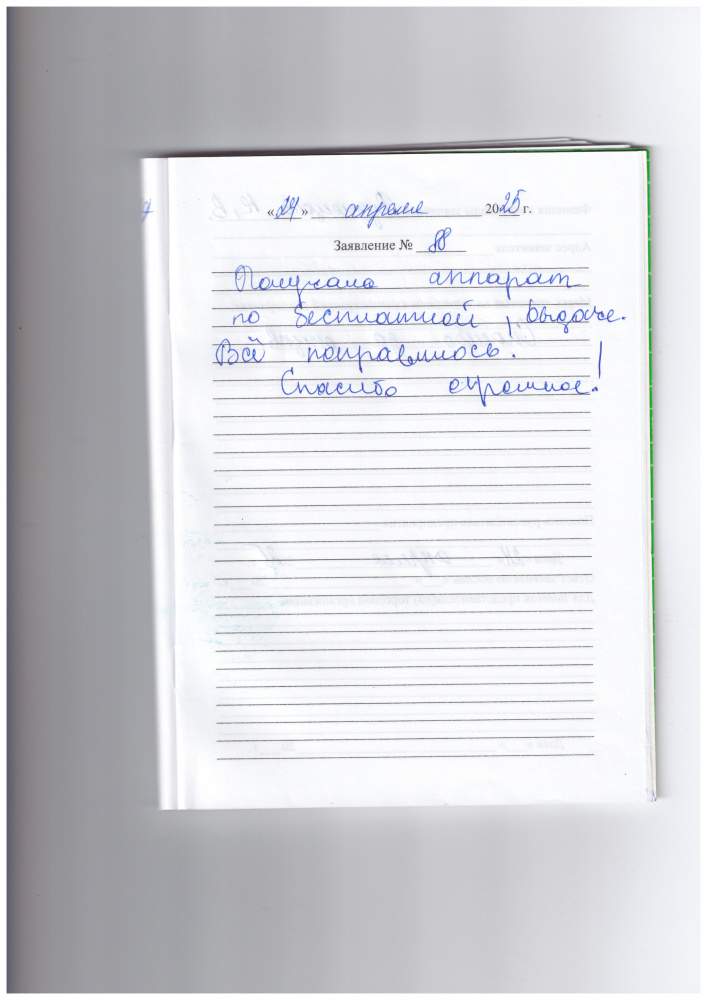 «24» апреля 2025 г.
Заявление № 88
Получала аппарат
по бесплатной выдаче.
Всё понравилось.
Спасибо огромное!